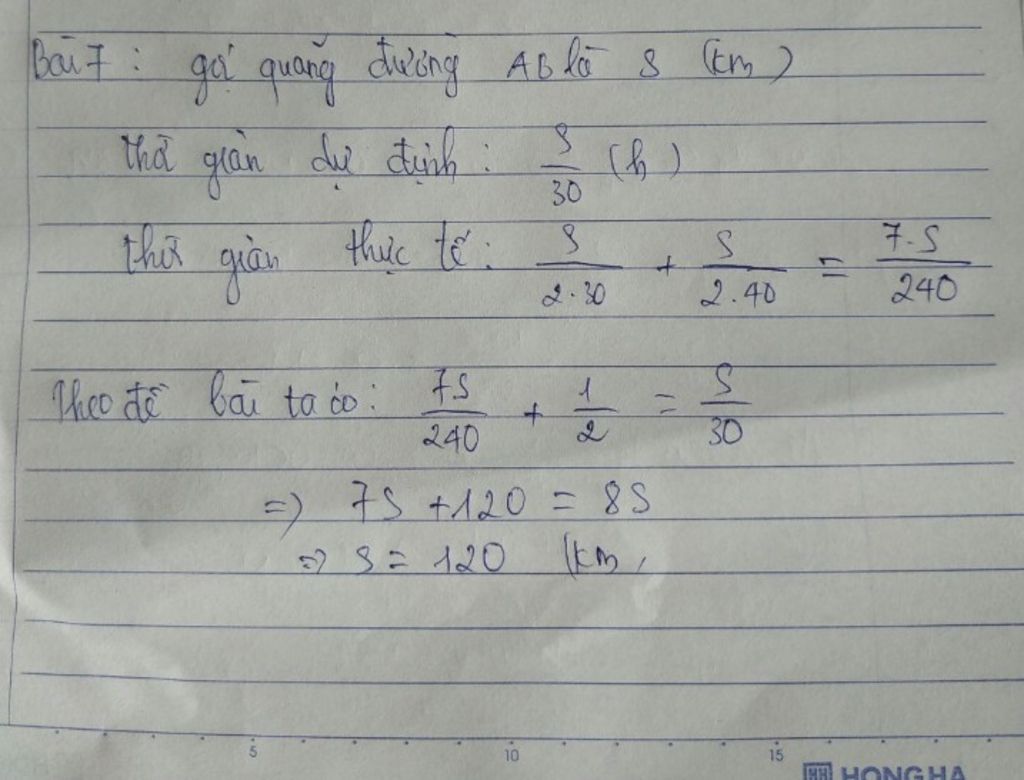 Bài 7 : gọi quãng đường AB là S (km)
thời gian dự định : S/30 (h)
thời gian thực tế : S/2.30 + S/2.40 = 7.S/240
Theo đề bài ta có : 7S/240 + 1/2 = S/30
=> 7S + 120 = 8S
=> S = 120 (km,
5 10 15
HH HONG HA